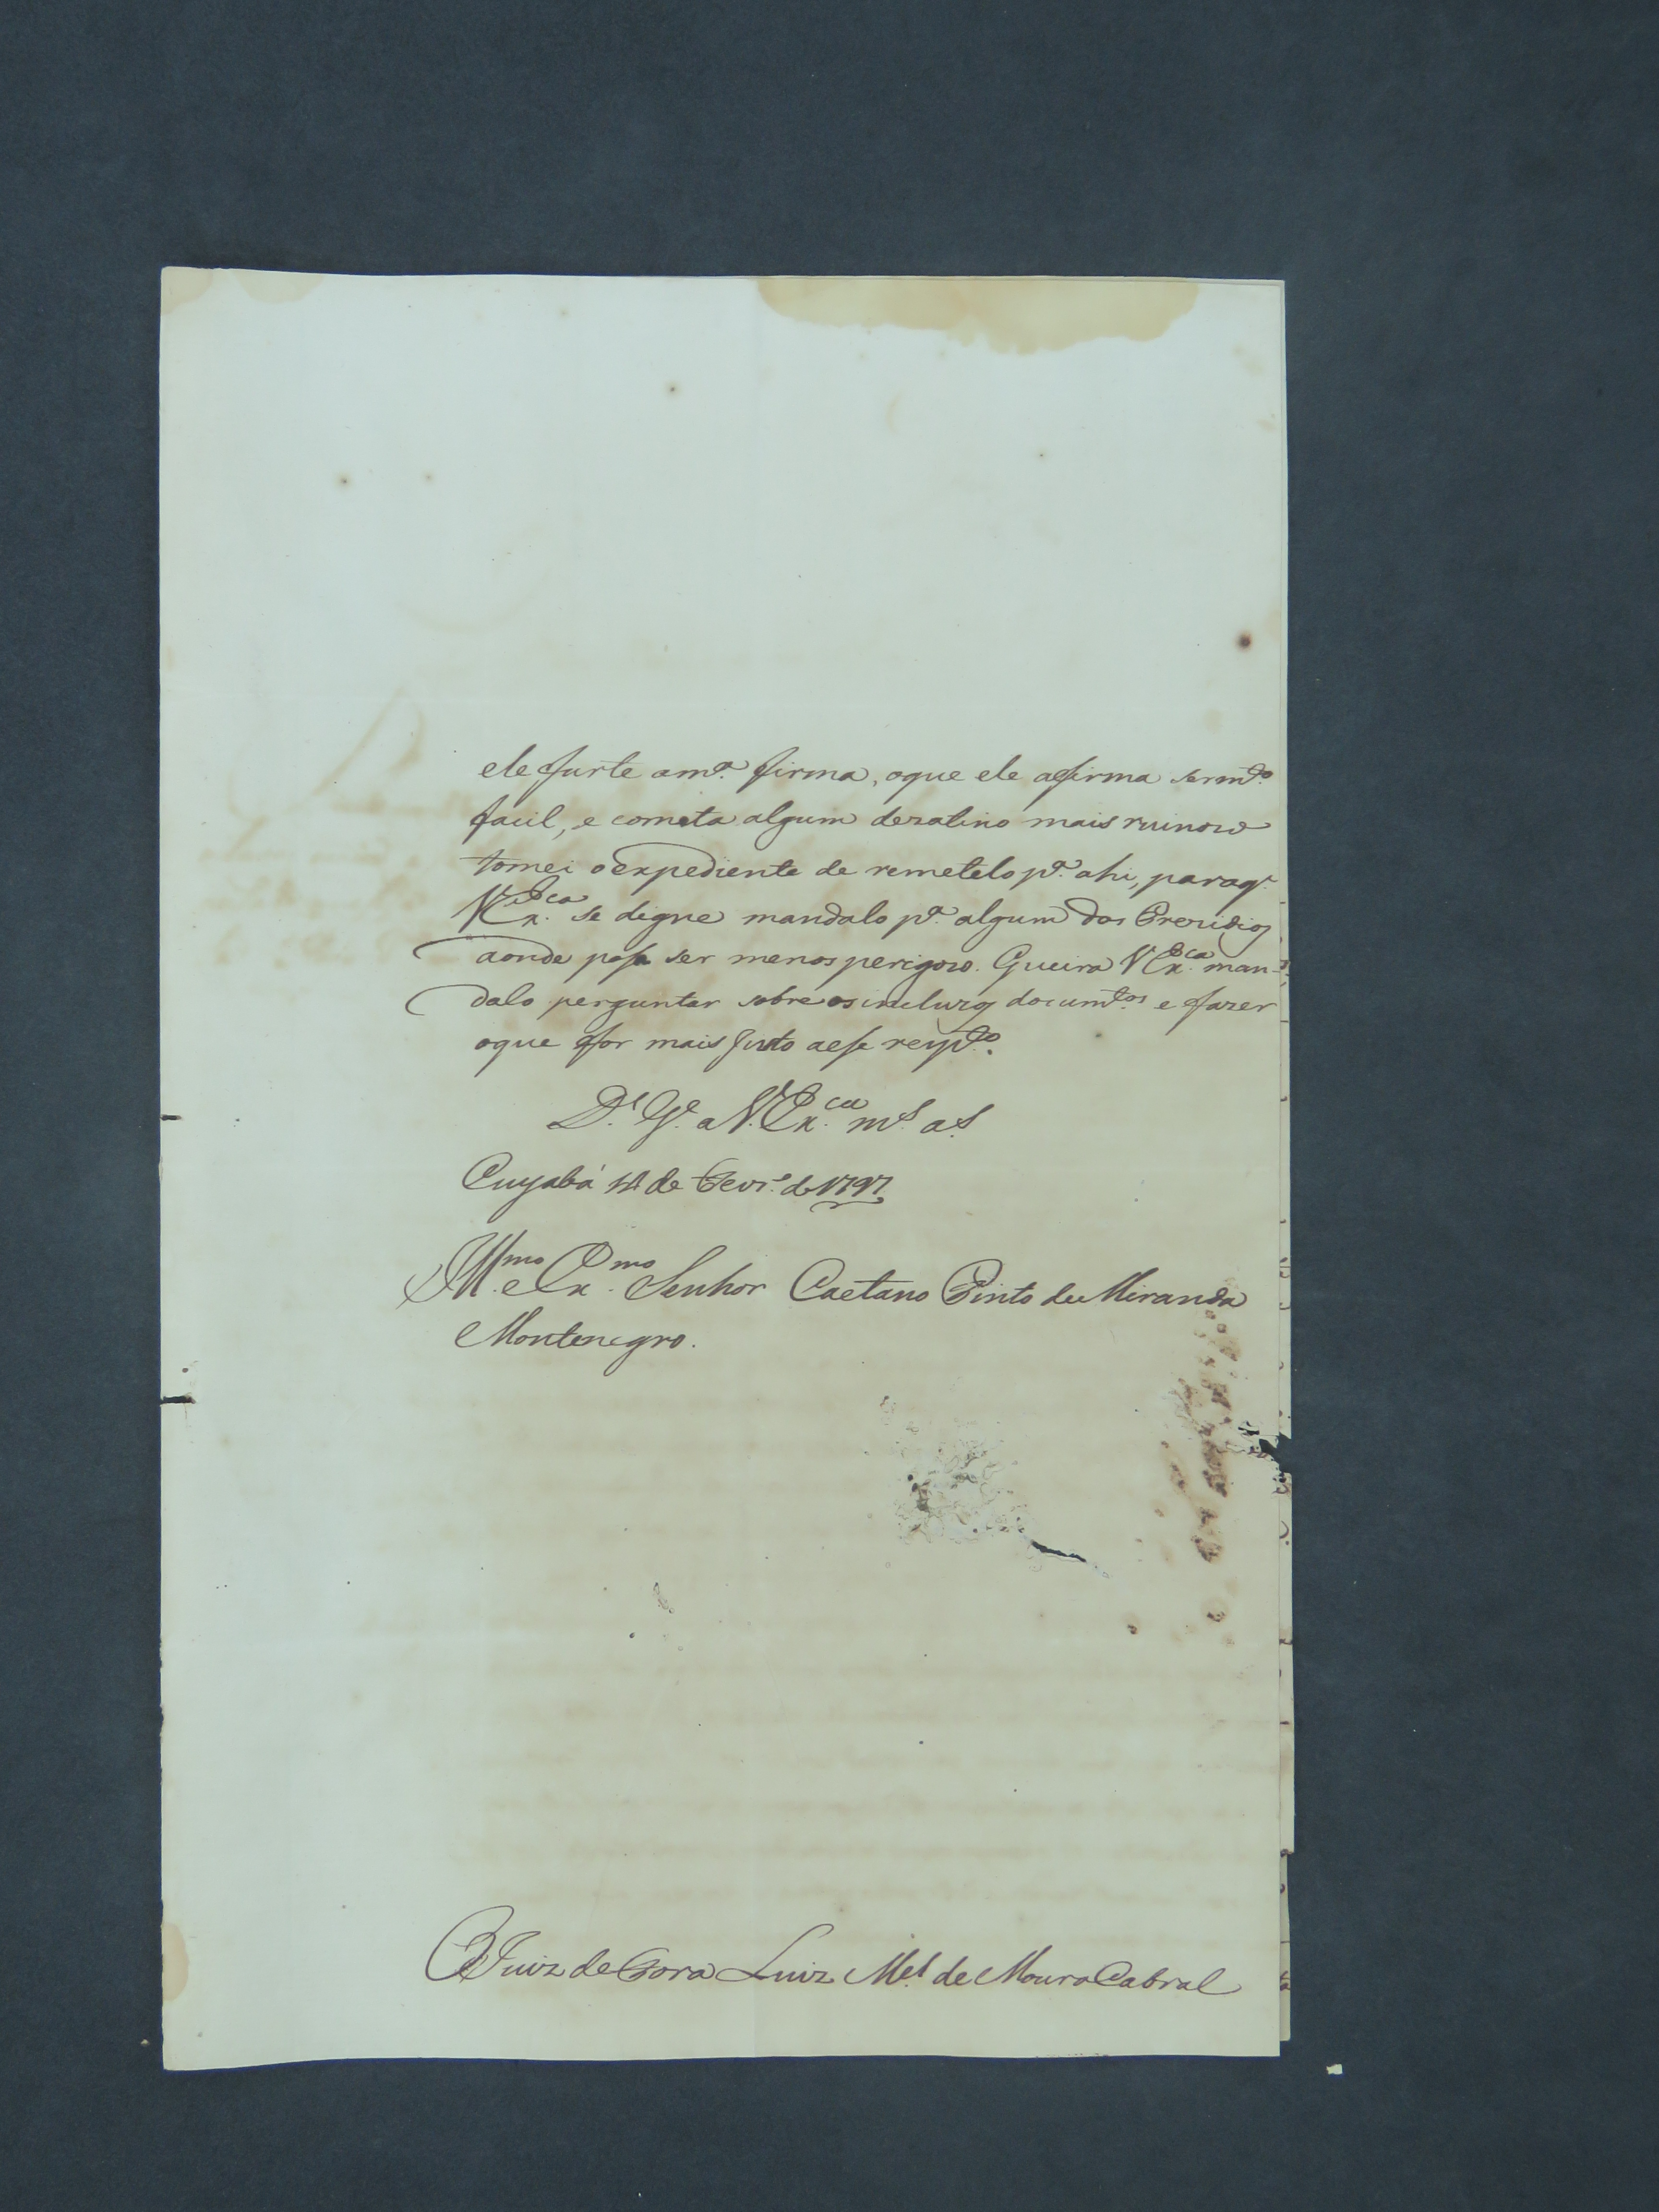 ele furte am.ª firma, oque ele afirma ser m.to
facil, e cometa algum dezatino mais ruinozo
tomei o expediente de remetelo p.ª ahi, paraq.
V. Ex.ca se digne mandalo p.ª algum dos Prezidios
aonde possa ser menos perigozo. Queira V. Ex.ca man-
dalo perguntar sobre os incluzos documt.os e fazer
oque for mais Justo aesse resp.to.
D.s G.e a V. Ex.ca m.s a.s
Cuyabá de Fevr.o de 1797
Ill.mo e Ex.mo Senhor Caetano Pinto de Miranda
Montenegro.
O Juiz de Fora Luiz M.el de Moura Cabral